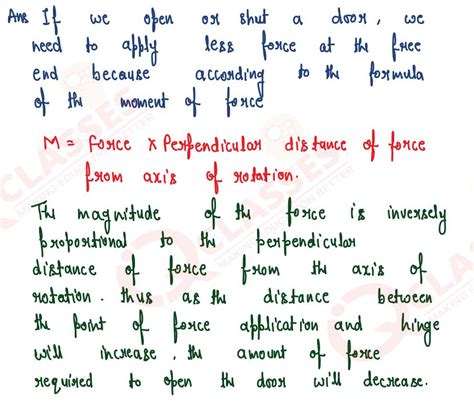 Ans If we open or shut a door, we
need to apply less force at the free
end because according to the formula
of the moment of force
M = force x Perpendicular distance of force
from axis of rotation.
The magnitude of the force is inversely
proportional to the perpendicular
distance of force from the axis of
rotation. thus as the distance between
the point of force application and hinge
will increase, the amount of force
required to open the door will decrease.